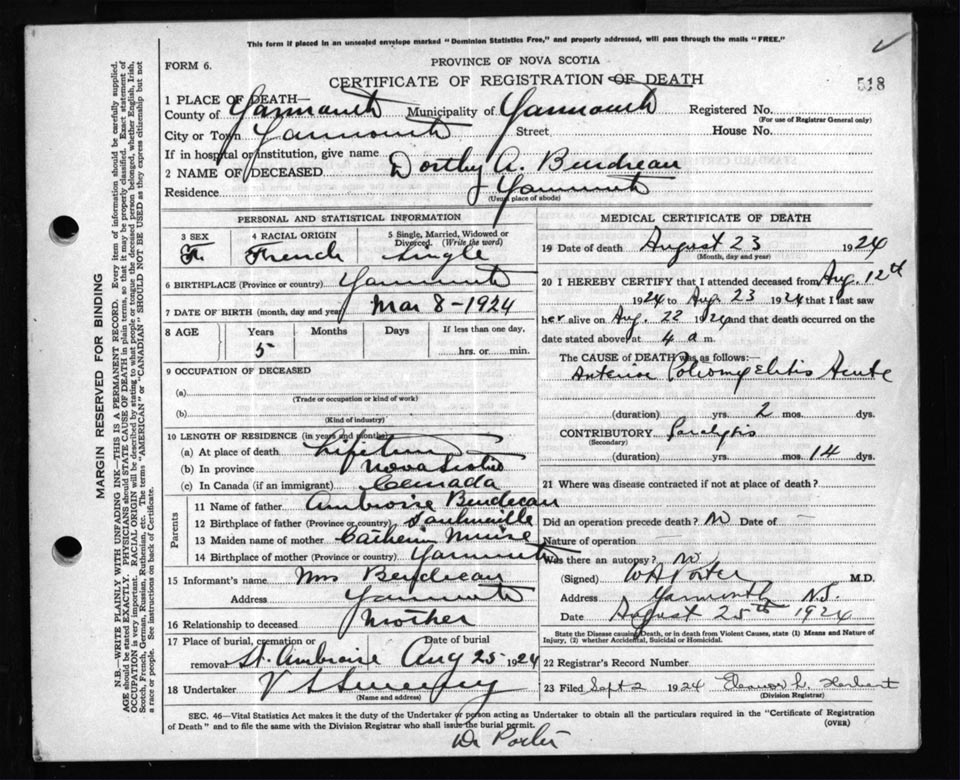 This form if placed in an unsealed envelope marked "Dominion Statistics Free," and properly addressed, will pass through the mails "FREE."
FORM 6.
PROVINCE OF NOVA SCOTIA
CERTIFICATE OF REGISTRATION OF DEATH
518
1 PLACE OF DEATH—
County of Yarmouth Municipality of Yarmouth Registered No.
(For use of Registrar General only)
City or Town Yarmouth Street House No.
If in hospital or institution, give name
2 NAME OF DECEASED Dorthy A. Burdreau
Residence Yarmouth
(Usual place of abode)
PERSONAL AND STATISTICAL INFORMATION
3 SEX 4 RACIAL ORIGIN 5 Single, Married, Widowed or Divorced. (Write the word)
F. French Single
6 BIRTHPLACE (Province or country) Yarmouth
7 DATE OF BIRTH (month, day and year) Mar 8-1924
8 AGE Years Months Days If less than one day,
5 hrs. or min.
9 OCCUPATION OF DECEASED
(a)
(Trade or occupation or kind of work)
(b)
(Kind of industry)
10 LENGTH OF RESIDENCE (in years and months)
(a) At place of death Lifetime
(b) In province Nova Scotia
(c) In Canada (if an immigrant) Canada
Parents
11 Name of father Ambroise Burdreau
12 Birthplace of father (Province or country) Saulnierville
13 Maiden name of mother Catherin Muise
14 Birthplace of mother (Province or country) Yarmouth
15 Informant's name Mrs Burdreau
Address Yarmouth
16 Relationship to deceased Mother
17 Place of burial, cremation or removal St. Ambroise Date of burial Aug 25-1924
18 Undertaker V S Sweeny
(Name and address)
MEDICAL CERTIFICATE OF DEATH
19 Date of death August 23 1924
(Month, day and year)
20 I HEREBY CERTIFY that I attended deceased from Aug. 12th
1924 to Aug. 23 1924 that I last saw
her alive on Aug. 22 1924 and that death occurred on
date stated above at 4 a m.
The CAUSE OF DEATH was as follows:—
Anterior Poliomyelitis Acute
(duration) yrs. 2 mos. dys.
CONTRIBUTORY Paralysis
(Secondary)
(duration) yrs. mos. 14 dys.
21 Where was disease contracted if not at place of death?
Did an operation precede death? No Date of —
Nature of operation —
Was there an autopsy? No
(Signed) W A Porter M.D.
Address Yarmouth N.S.
Date August 25th 1924
State the Disease causing Death, or in death from Violent Causes, state (1) Means and Nature of
Injury, (2) whether Accidental, Suicidal or Homicidal.
22 Registrar's Record Number
23 Filed Sept 2 1924 Eleanor L. Herbert
(Division Registrar)
SEC. 46—Vital Statistics Act makes it the duty of the Undertaker or person acting as Undertaker to obtain all the particulars required in the "Certificate of Registration
of Death" and to file the same with the Division Registrar who shall issue the burial permit.
(OVER)
Dr Porter
MARGIN RESERVED FOR BINDING
N.B.—WRITE PLAINLY WITH UNFADING INK—THIS IS A PERMANENT RECORD. Every item of information should be carefully supplied.
AGE should be stated EXACTLY. PHYSICIANS should STATE CAUSE OF DEATH in plain terms, so that it may be properly classified. Exact statement of
OCCUPATION is very important. RACIAL ORIGIN will be described by stating to what people or tongue the deceased person belonged, whether English, Irish,
Scotch, French, German, Russian, Ruthenian, etc. The terms "AMERICAN" or "CANADIAN" SHOULD NOT BE USED as they express citizenship but not
a race or people. See instructions on back of Certificate.